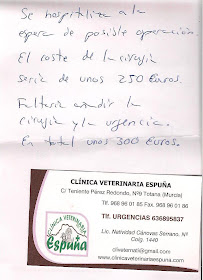 Se hospitaliza a la
espera de posible operación.
El coste de la cirugía
sería de unos 250 Euros.
Faltaría añadir la
cirugía y la urgencia.
En total unos 300 Euros.
CLÍNICA VETERINARIA ESPUÑA
C/ Teniente Pérez Redondo, Nº9 Totana (Murcia)
Tlf. 968 96 01 85 Fax. 968 96 01 86
Tlf. URGENCIAS 636895837
Lic. Natividad Cánovas Serrano. Nº
Colg. 1440
cliveternati@gmail.com
www.clinicaveterinariaespuna.com
CLÍNICA VETERINARIA
Espuña